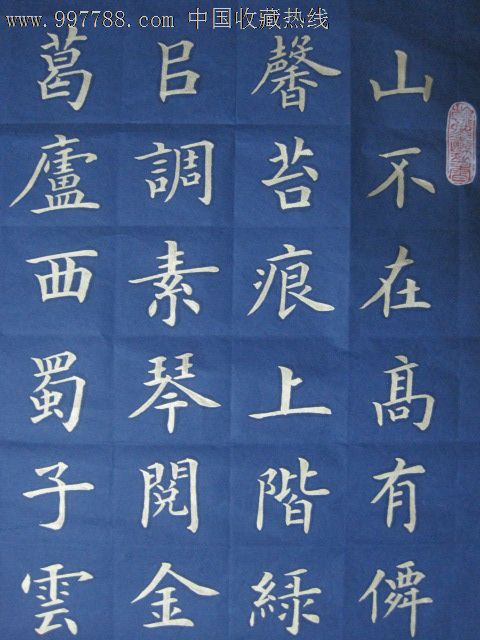 www.997788.com 中国收藏热线
山不在髙有僊
馨苔痕上階緑
㠯調素琴閱金
葛廬西蜀子雲